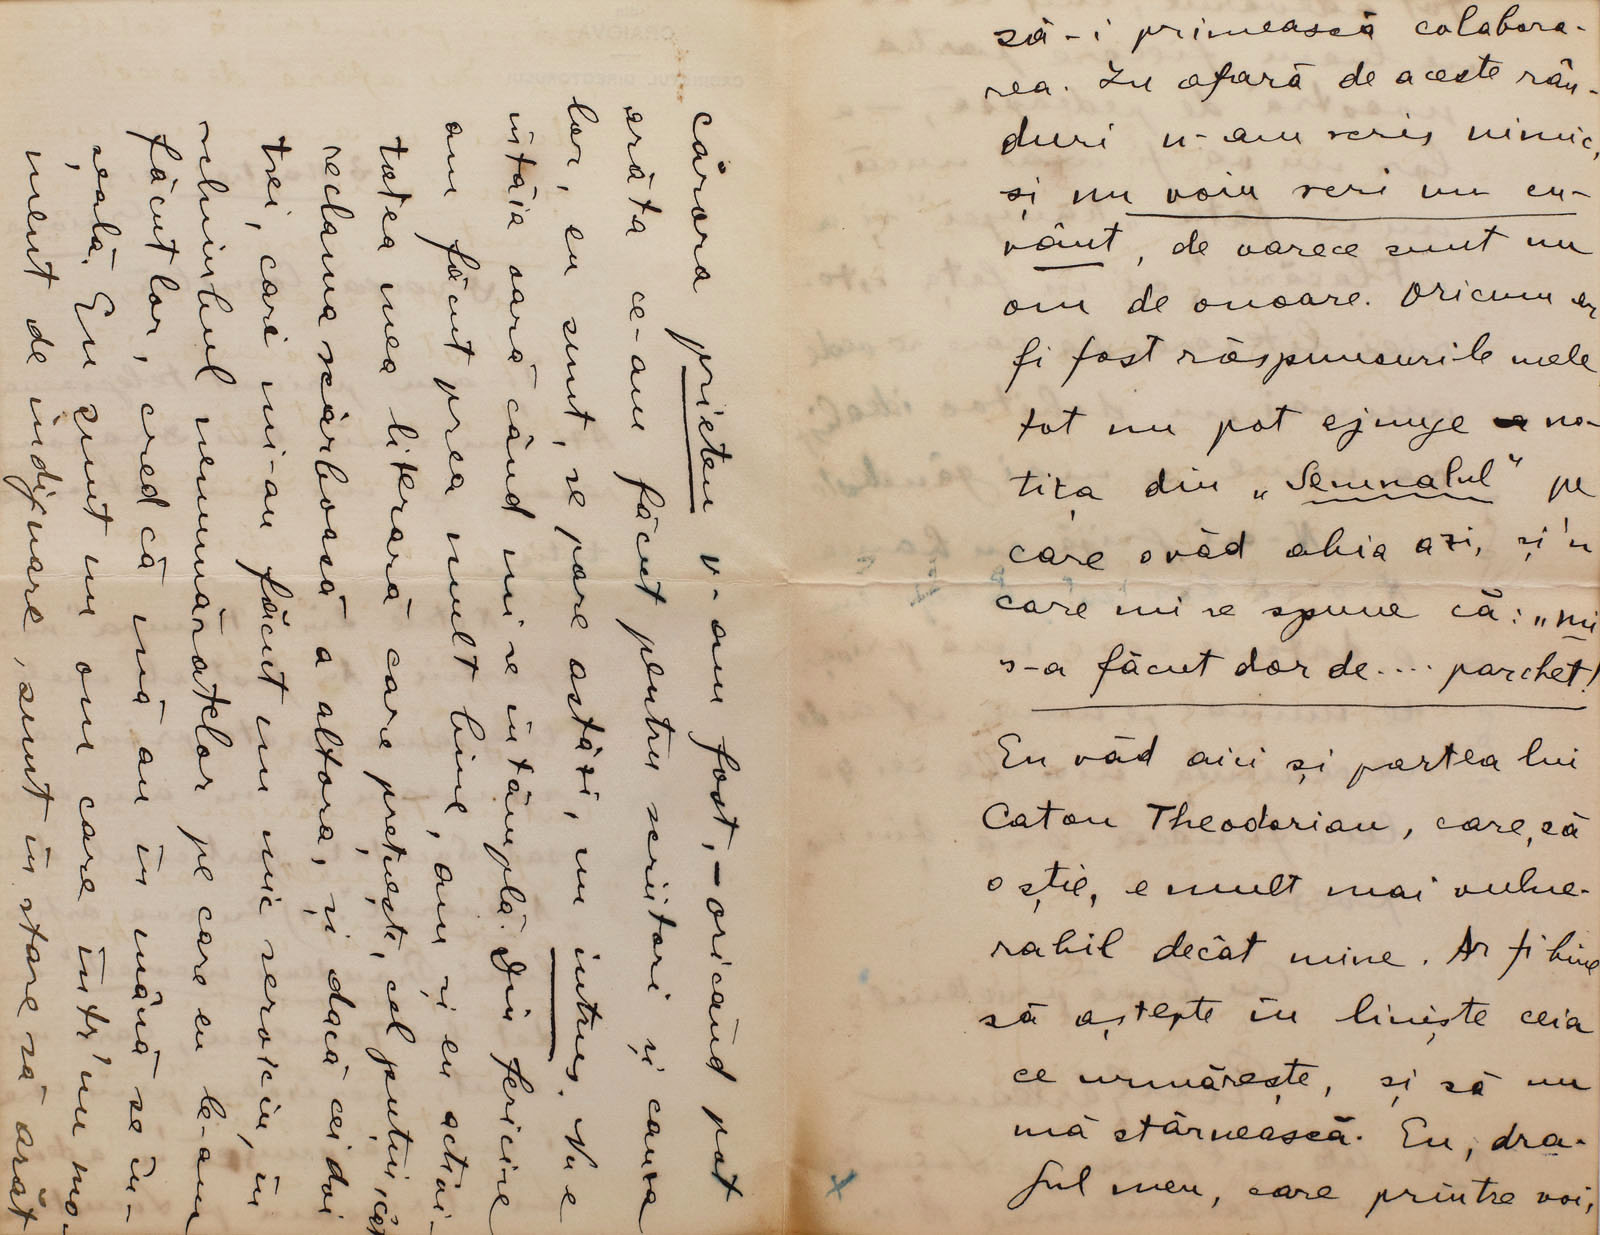 să-i primească colabora-
rea. În afară de aceste rân-
duri n-am scris nimic,
și nu voiu scri un cu-
vânt, de oarece sunt un
om de onoare. Oricum ar
fi fost răspunsurile mele
tot nu pot ajunge no-
tița din „Semnalul" pe
care o văd abia azi, și'n
care mi se spune că: „mi
s-a făcut dor de.... parchet!
Eu văd aici și partea lui
Caton Theodorian, care, să
o știe, e mult mai vulne-
rabil decât mine. Ar fi bine
să aștepte în liniște ceia
ce urmărește, și să nu
mă stârnească. Eu, dra-
gul meu, care printre voi,
cărora prieten v-am fost, - oricând pot
arăta ce-am făcut pentru scriitori și cauza
lor, eu sunt, se pare astăzi, un intrus. Nu e
întâia oară când mi se întâmplă. Din fericire
am făcut prea mult bine, am și eu activi-
tatea mea literară care prețuește, cel puțin, cât
reclama scârboasă a altora, și dacă cei doi
trei, cari mi-au făcut un mic serviciu, în
schimbul nenumăratelor pe care eu le-am
făcut lor, cred că mă au în mână se în-
șeală. Eu sunt un om care într'un mo-
ment de indignare, sunt în stare să arăt
CRAIOVA
CABINETUL DIRECTORULUI